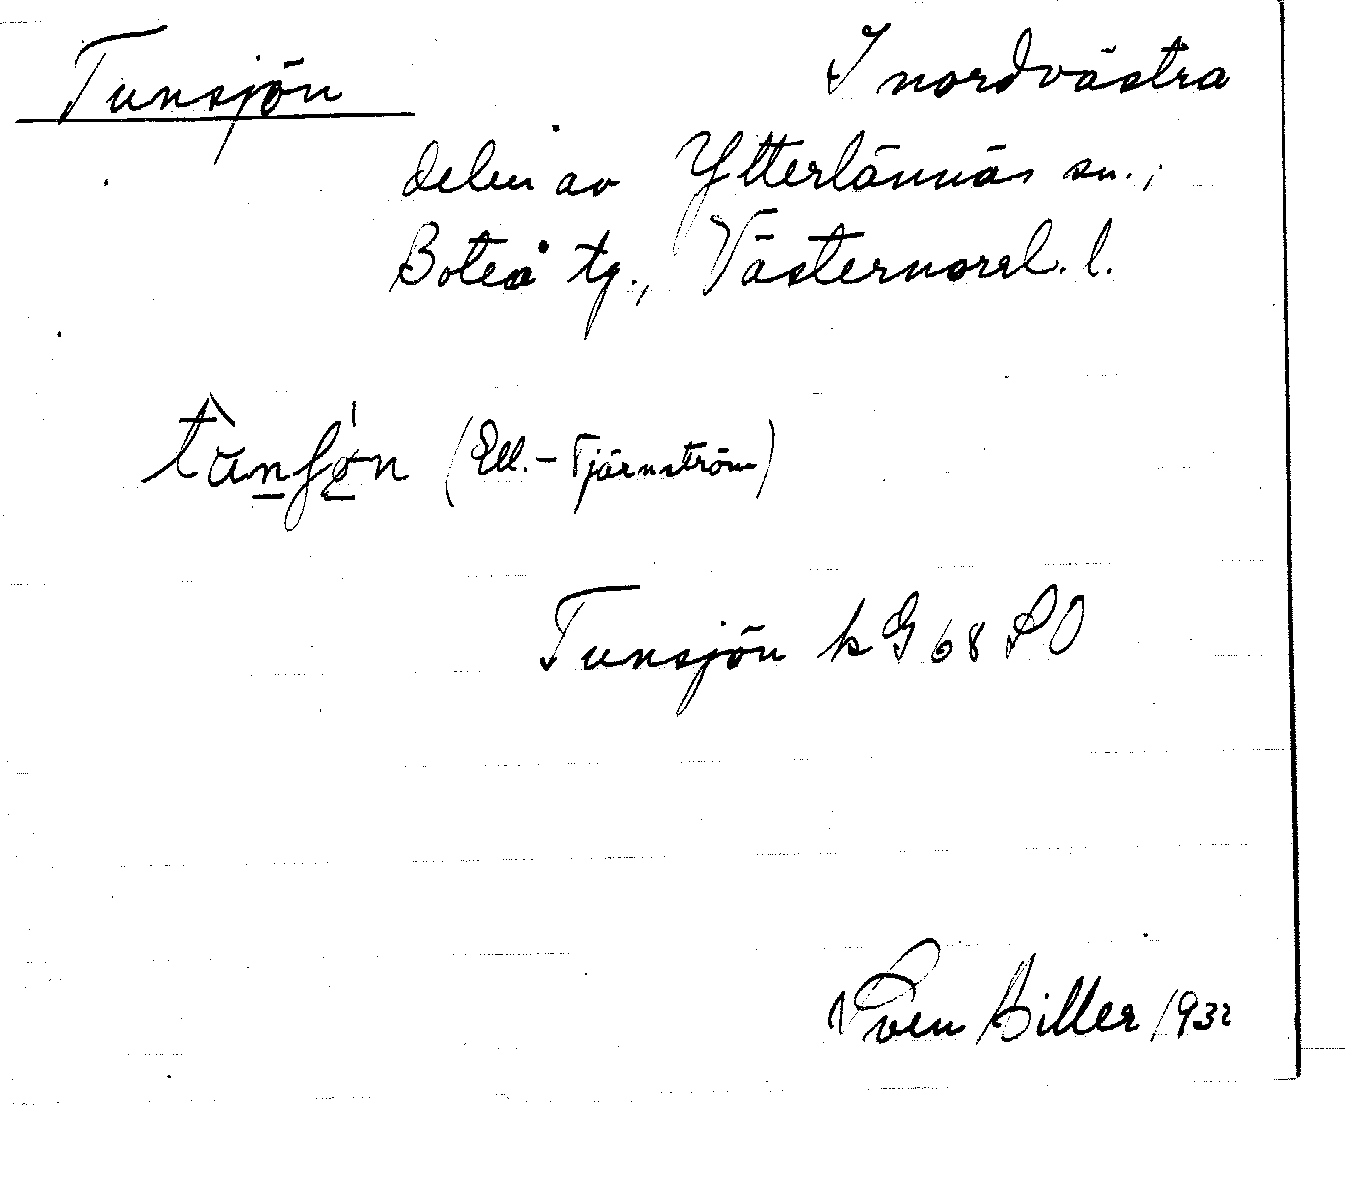 Tunsjön
I nordvästra
delen av Ytterlännäs sn.,
Boteå tg., Västernorrl. l.
(Ell. – Tjärnström)
Tunsjön k G 68 SO
Sven Hiller 1932